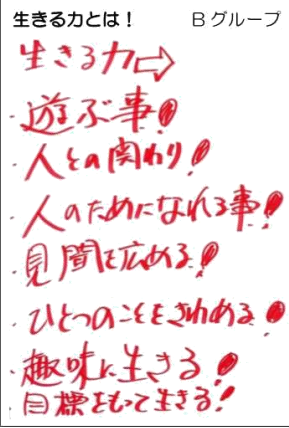 生きる力とは！ Bグループ
生きる力⇨
・遊ぶ事！
・人との関わり！
・人のためになれる事！
・見聞を広める！
・ひとつのことをきわめる！
・趣味に生きる！
・目標をもって生きる！